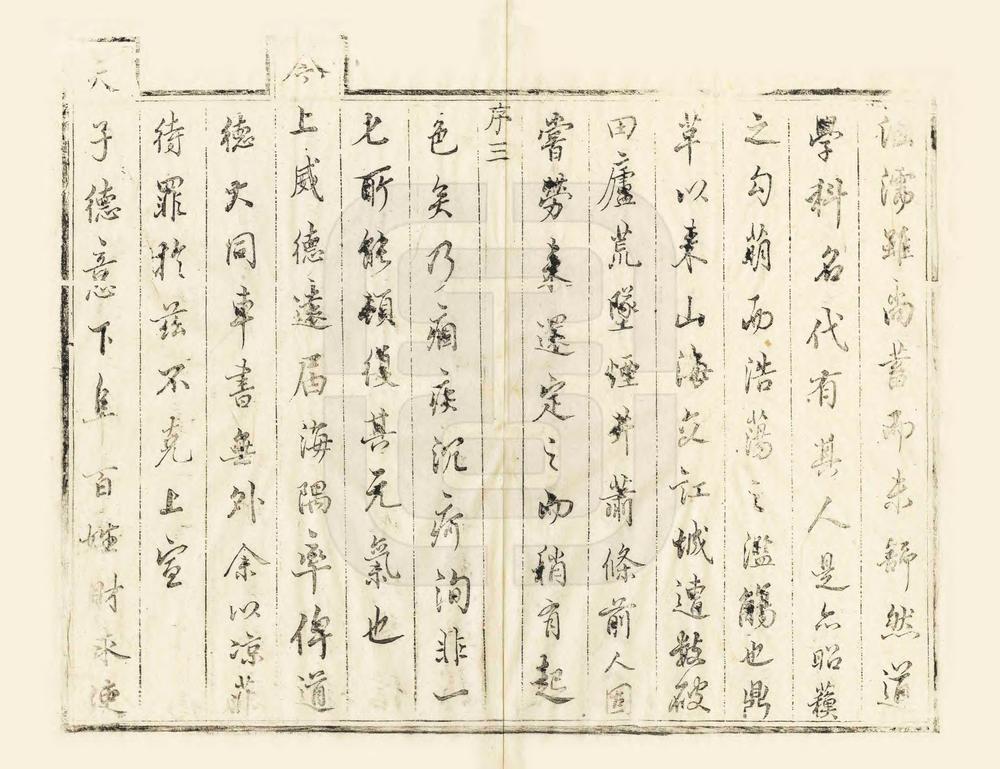 涵濡雖尚蓄而未舒然道
學科名代有其人是亦昭蘓
之勾萌而浩蕩之濫觴也鼎
草以來山海交訌城遭數破
田廬荒墜煙井蕭條前人固
嘗勞来還定之而稍有起
序三
色矣乃痼疾沉痾洵非一
匕所能頓復其元氣也
今上威德遠届海隅率俾道
德大同車書無外余以凉菲
待罪於茲不克上宣
天子德意下阜百姓財求